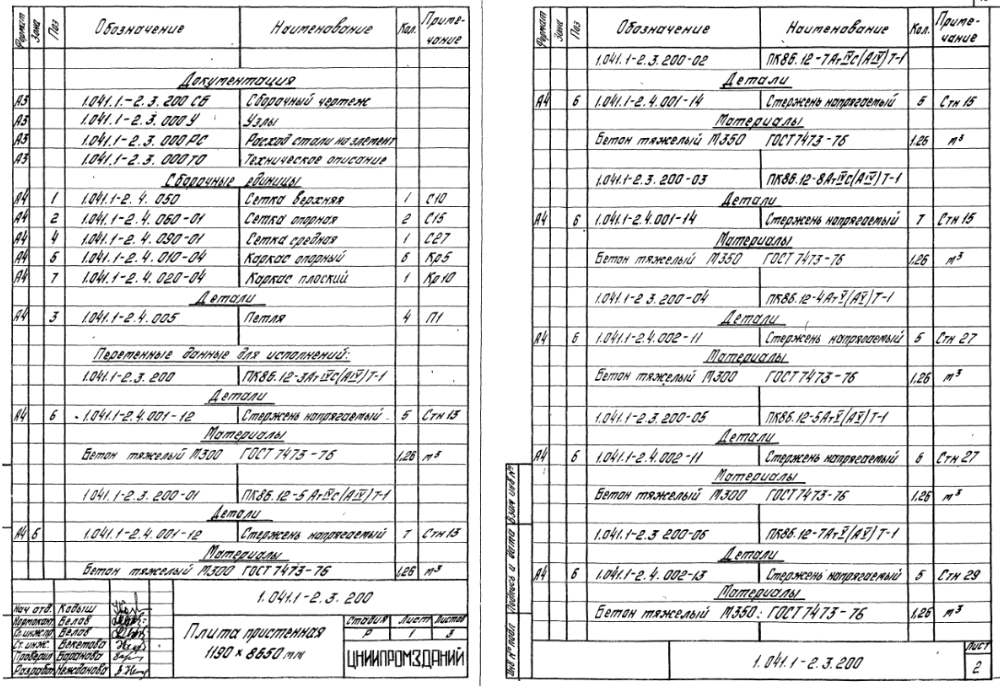 Формат Зона Поз Обозначение Наименование Кол. Приме-чание
Документация
А3 1.041.1-2.3.200 СБ Сборочный чертеж
А3 1.041.1-2.3.000 У Узлы
А3 1.041.1-2.3.000 РС Расход стали на элемент
А3 1.041.1-2.3.000 ТО Техническое описание
Сборочные единицы
А4 1 1.041.1-2.4.050 Сетка верхняя 1 С10
А4 2 1.041.1-2.4.060-01 Сетка опорная 2 С15
А4 4 1.041.1-2.4.090-01 Сетка средняя 1 С27
А4 5 1.041.1-2.4.010-04 Каркас опорный 6 Кр5
А4 7 1.041.1-2.4.020-04 Каркас плоский 1 Кр10
Детали
А4 3 1.041.1-2.4.005 Петля 4 П1
Переменные данные для исполнений:
1.041.1-2.3.200 ПК86.12-3АтIVС(АIV)Т-1
Детали
А4 6 1.041.1-2.4.001-12 Стержень напрягаемый 5 Стн 13
Материалы
Бетон тяжелый М300 ГОСТ 7473-76 1,26 м³
1.041.1-2.3.200-01 ПК86.12-5АтIVС(АIV)Т-1
Детали
А4 6 1.041.1-2.4.001-12 Стержень напрягаемый 7 Стн 13
Материалы
Бетон тяжелый М300 ГОСТ 7473-76 1,26 м³
1.041.1-2.3.200
Нач отд. Кодыш
Нормоконт. Белов
Гл.инж.пр. Белов
Ст. инж. Бекетова
Проверил Баранова
Разработ. Нежданова
Плита пристенная
1190 × 8650 мм
Стадия Лист Листов
Р 1 3
ЦНИИПРОМЗДАНИЙ
Формат Зона Поз Обозначение Наименование Кол. Приме-чание
1.041.1-2.3.200-02 ПК86.12-7АтIVС(АIV)Т-1
Детали
А4 6 1.041.1-2.4.001-14 Стержень напрягаемый 5 Стн 15
Материалы
Бетон тяжелый М350 ГОСТ 7473-76 1,26 м³
1.041.1-2.3.200-03 ПК86.12-8АтIVС(АIV)Т-1
Детали
А4 6 1.041.1-2.4.001-14 Стержень напрягаемый 7 Стн 15
Материалы
Бетон тяжелый М350 ГОСТ 7473-76 1,26 м³
1.041.1-2.3.200-04 ПК86.12-4АтV(АV)Т-1
Детали
А4 6 1.041.1-2.4.002-11 Стержень напрягаемый 5 Стн 27
Материалы
Бетон тяжелый М300 ГОСТ 7473-76 1,26 м³
1.041.1-2.3.200-05 ПК86.12-5АтV(АV)Т-1
Детали
А4 6 1.041.1-2.4.002-11 Стержень напрягаемый 6 Стн 27
Материалы
Бетон тяжелый М300 ГОСТ 7473-76 1,26 м³
1.041.1-2.3.200-06 ПК86.12-7АтV(АV)Т-1
Детали
А4 6 1.041.1-2.4.002-13 Стержень напрягаемый 5 Стн 29
Материалы
Бетон тяжелый М350 ГОСТ 7473-76 1,26 м³
Инв № подл. Подпись и дата Взам инв №
1.041.1-2.3.200
Лист
2